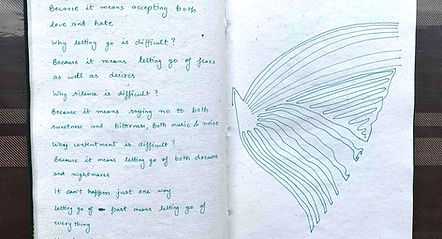 Because it means accepting both
love and hate
Why letting go is difficult?
Because it means letting go of fears
as well as desires
Why silence is difficult?
Because it means saying no to both
sweetness and bitterness, both music & noise
Why contentment is difficult?
Because it means letting go of both dreams
and nightmares
It can't happen just one way
letting go of past means letting go of
everything